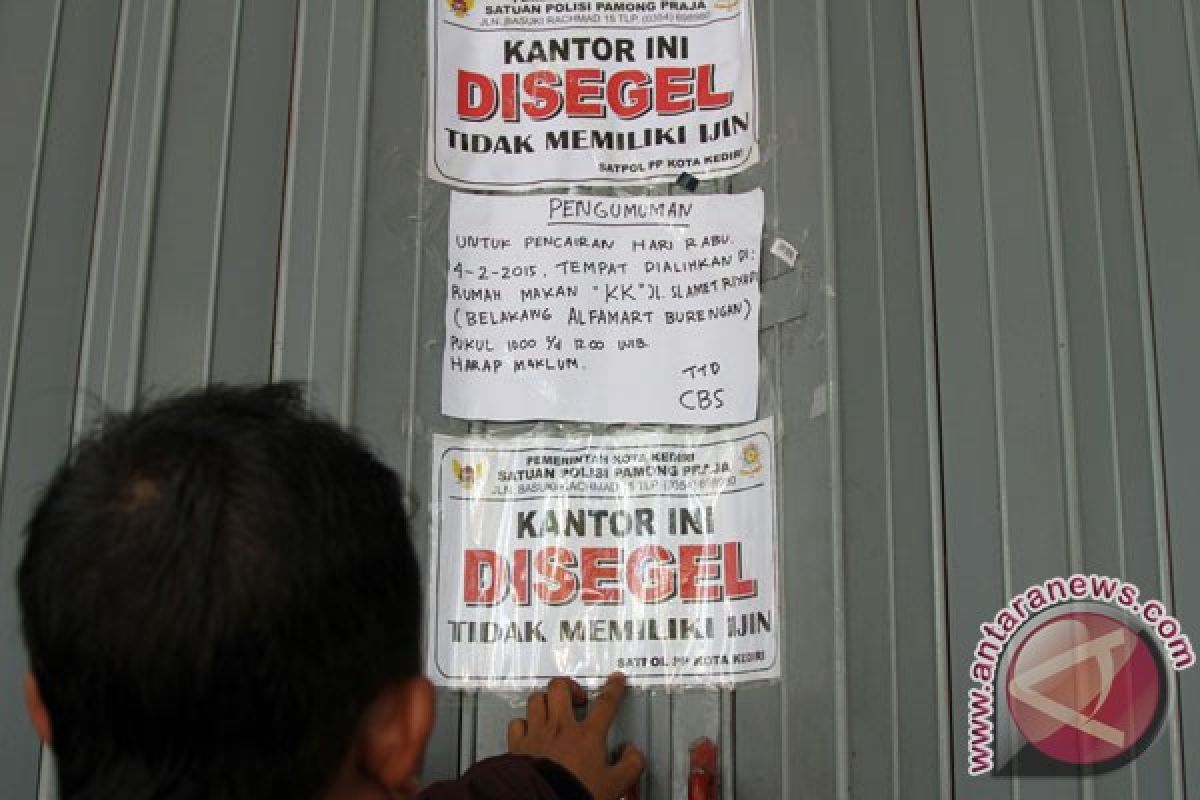 SATUAN POLISI PAMONG PRAJA
JLN. BASUKI RACHMAD 15 TLP. (0354)
KANTOR INI
DISEGEL
TIDAK MEMILIKI IJIN
SATPOL PP KOTA KEDIRI
PENGUMUMAN
UNTUK PENCAIRAN HARI RABU.
4-2-2015, TEMPAT DIALIHKAN DI:
RUMAH MAKAN "KK" JL. SLAMET RIYADI
(BELAKANG ALFAMART BURENGAN)
PUKUL 1000 S/d 1200 WIB
HARAP MAKLUM.
TTD
CBS
PEMERINTAH KOTA KEDIRI
SATUAN POLISI PAMONG PRAJA
JLN. BASUKI RACHMAD 15 TLP. (0354)
KANTOR INI
DISEGEL
TIDAK MEMILIKI IJIN
SATPOL PP KOTA KEDIRI
www.antaranews.com